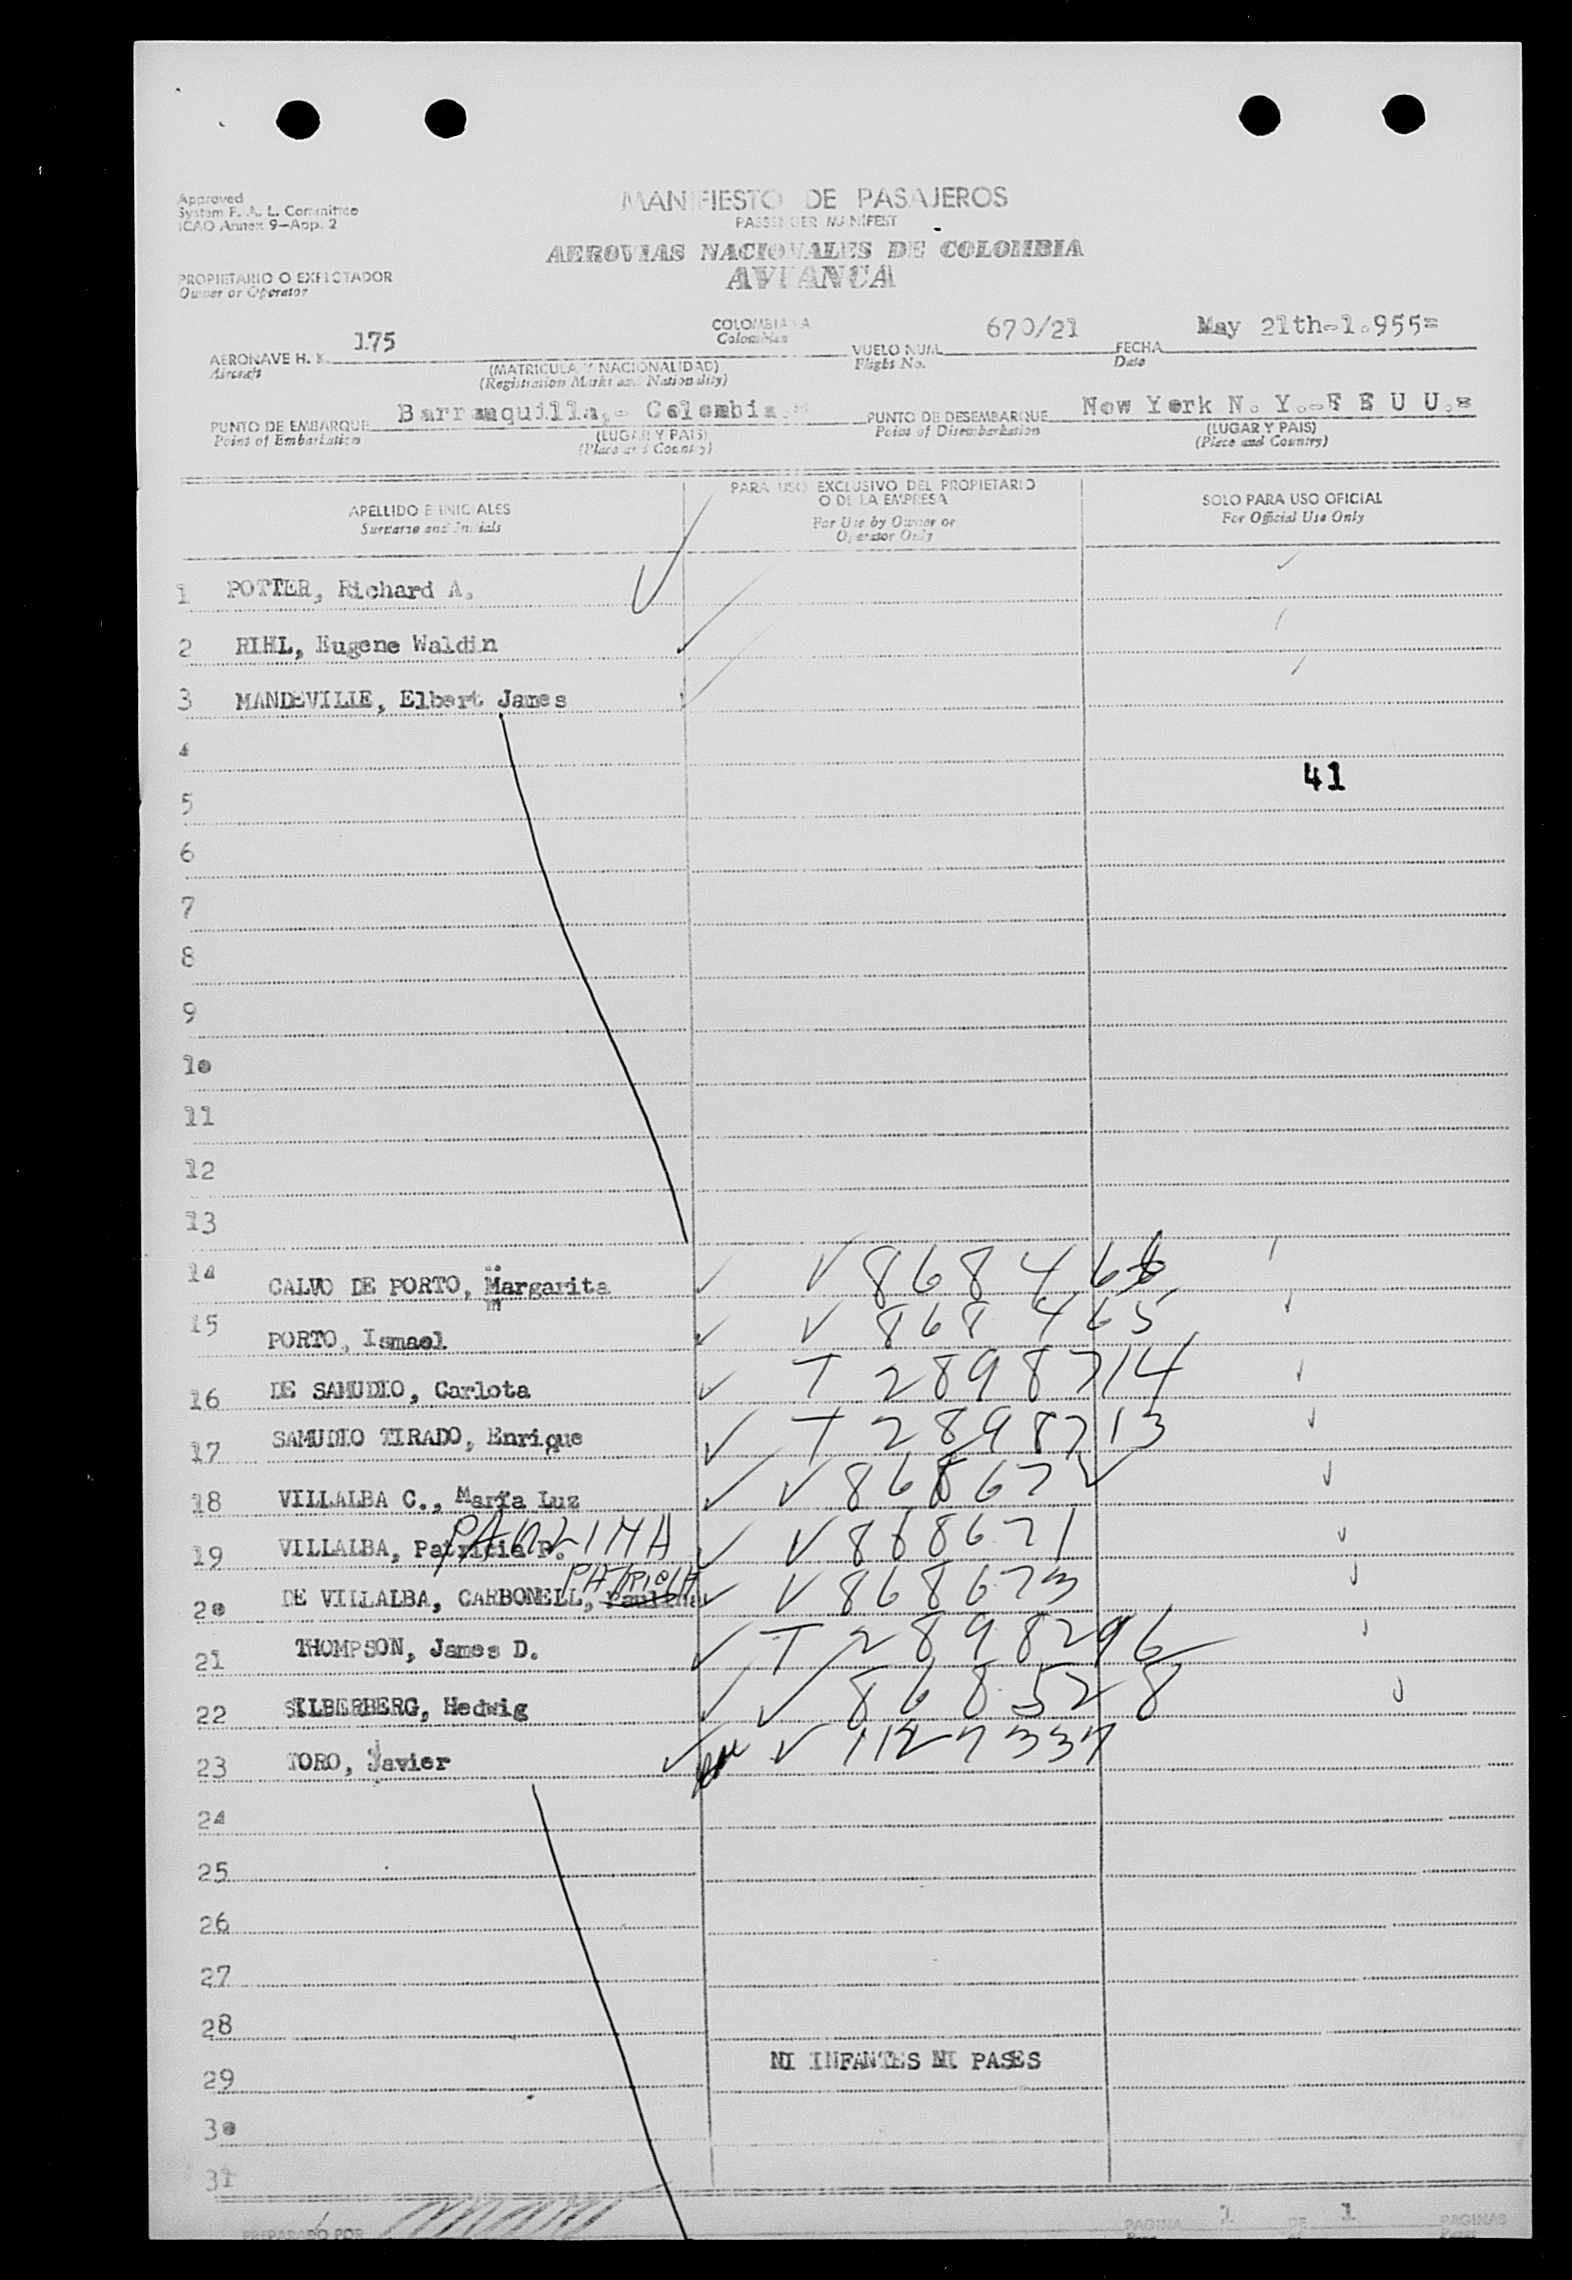 Approved
System F. A. L. Committee
ICAO Annex 9—App. 2
MANIFIESTO DE PASAJEROS
PASSENGER MANIFEST
AEROVIAS NACIONALES DE COLOMBIA
AVIANCA
PROPIETARIO O EXPLOTADOR
Owner or Operator
AERONAVE H. K. 175 COLOMBIANA VUELO NUM. 670/21 FECHA May 21th-1.955=
Aircraft Colombian Flight No. Date
(MATRICULA Y NACIONALIDAD)
(Registration Marks and Nationality)
PUNTO DE EMBARQUE Barranquilla,- Colombia.= PUNTO DE DESEMBARQUE New York N. Y.-E E U U.=
Point of Embarkation (LUGAR Y PAIS) Point of Disembarkation (LUGAR Y PAIS)
(Place and Country) (Place and Country)
APELLIDO E INICIALES PARA USO EXCLUSIVO DEL PROPIETARIO O DE LA EMPRESA SOLO PARA USO OFICIAL
Surname and Initials For Use by Owner or Operator Only For Official Use Only
1 POTTER, Richard A.
2 RIHL, Eugene Waldin
3 MANDEVILLE, Elbert James
4
41
5
6
7
8
9
10
11
12
13
14 CALVO DE PORTO, Margarita V 868 4 6
15 PORTO, Ismael V 868 465
16 DE SAMUDIO, Carlota T 2898714
17 SAMUDIO TIRADO, Enrique T 2898713
18 VILLALBA C., María Luz V 868672
19 VILLALBA, Patricia P. PAOLINA V 868671
20 DE VILLALBA, CARBONELL, Paulina PATRICIA V 868673
21 THOMPSON, James D. T 2898296
22 SILBERBERG, Hedwig V 868528
23 TORO, Javier V 1127337
24
25
26
27
28
NI INFANTES NI PASES
29
30
31
PREPARADO POR PAGINA 1 DE 1 PAGINAS